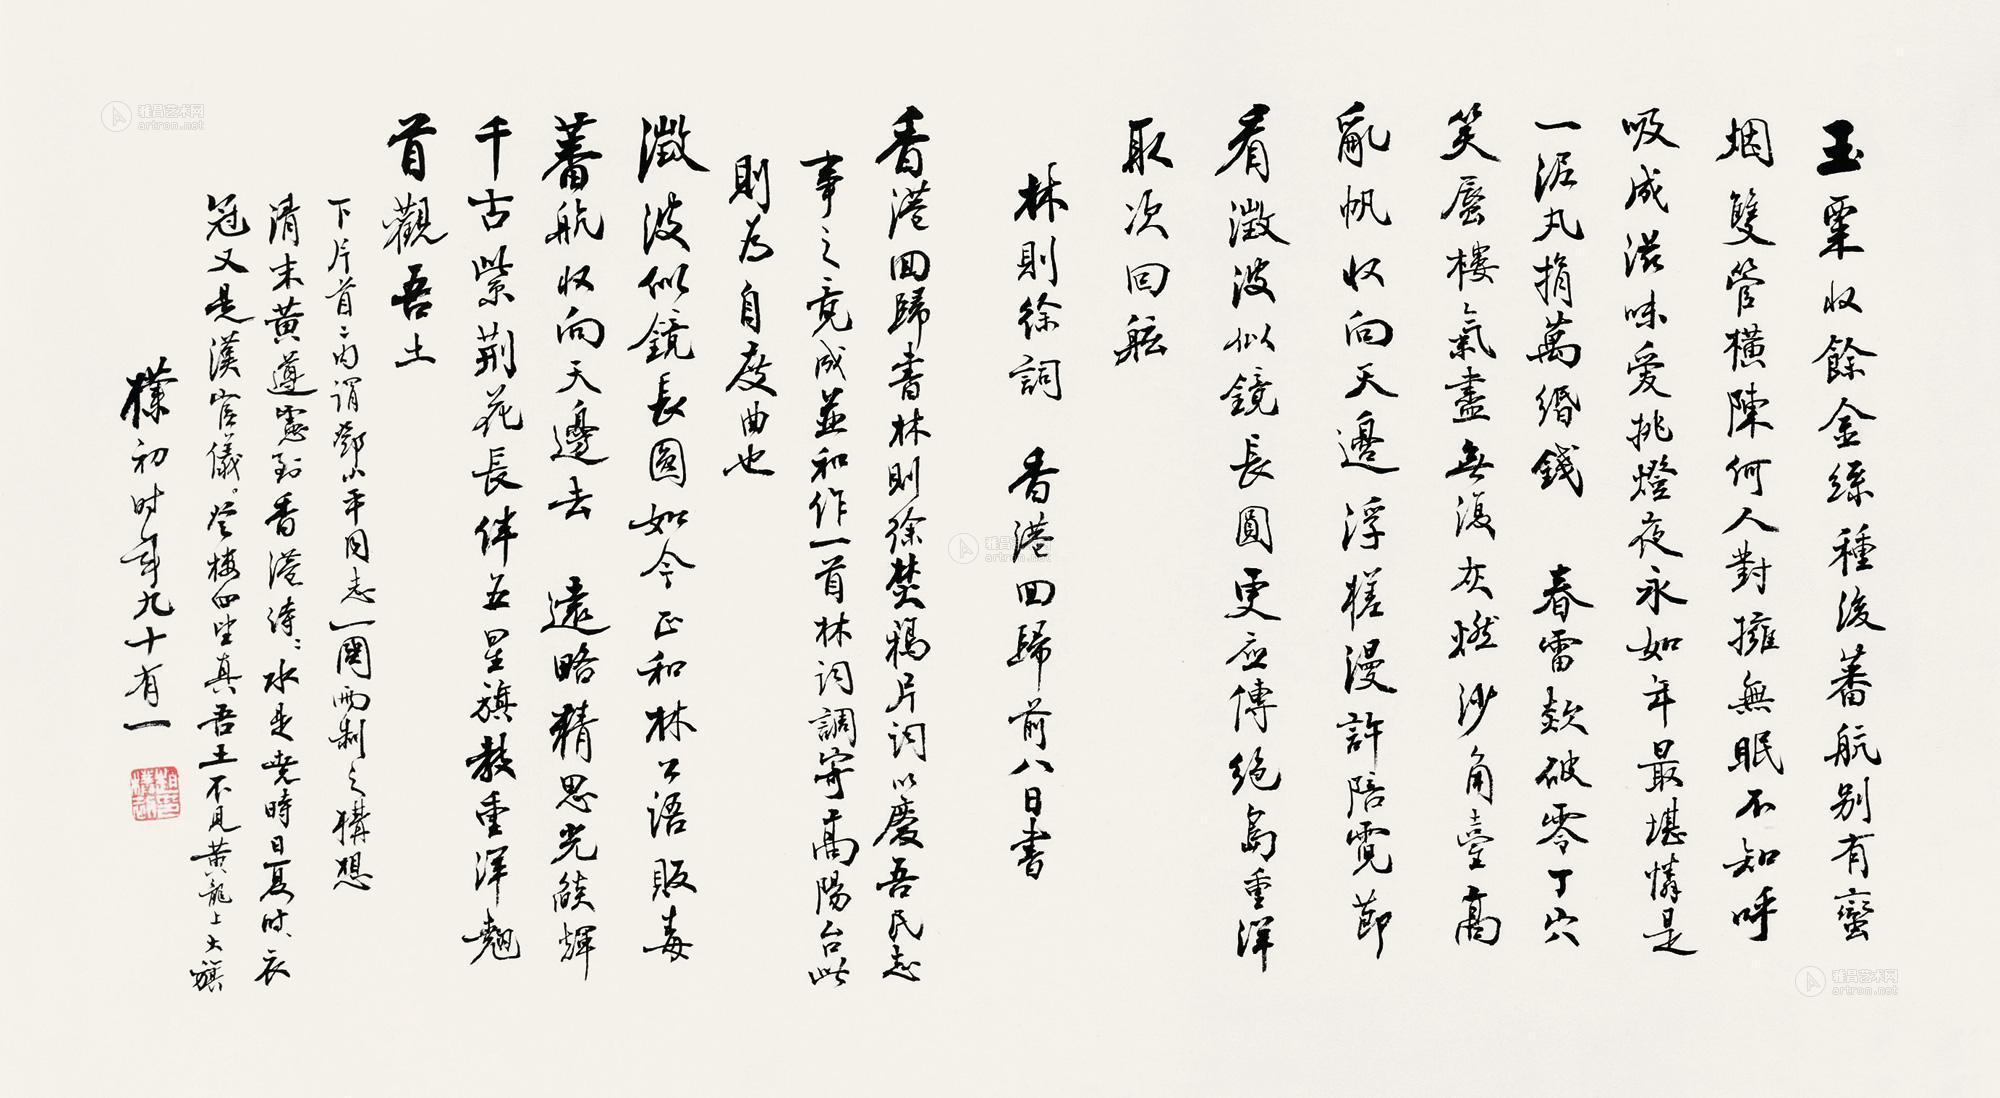 玉粟收餘金絲種後蕃航別有蠻
烟雙管橫陳何人對擁無眠不知呼
吸成滋味愛挑燈夜永如年最堪憐是
一泥丸捐萬緡錢　春雷欻破零丁穴
笑蜃樓氣盡無復灰燃沙角臺高
亂帆收向天邊浮槎漫許陪霓節
看澂波似鏡長圓更應傳絕島重洋
取次回舷
林則徐詞　香港回歸前八日書
香港回歸書林則徐焚鴉片詞以慶吾民志
事之竟成並和作一首林词調寄高陽台此
則为自度曲也
澂波似鏡長圓如今正和林公語販毒
蕃航收向天邊去　遠略精思光燄輝
千古紫荆花長伴五星旗教重洋翹
首觀吾土
下片首二句谓鄧小平同志一國兩制之構想
清末黄遵憲到香港诗：水是堯時日夏时、衣
冠又是漢官儀。登楼四望真吾土不見黄龍上大旗
樸初时年九十有一
趙樸初
雅昌艺术网
artron.net
雅昌艺术网
artron.net
雅昌艺术网
artron.net